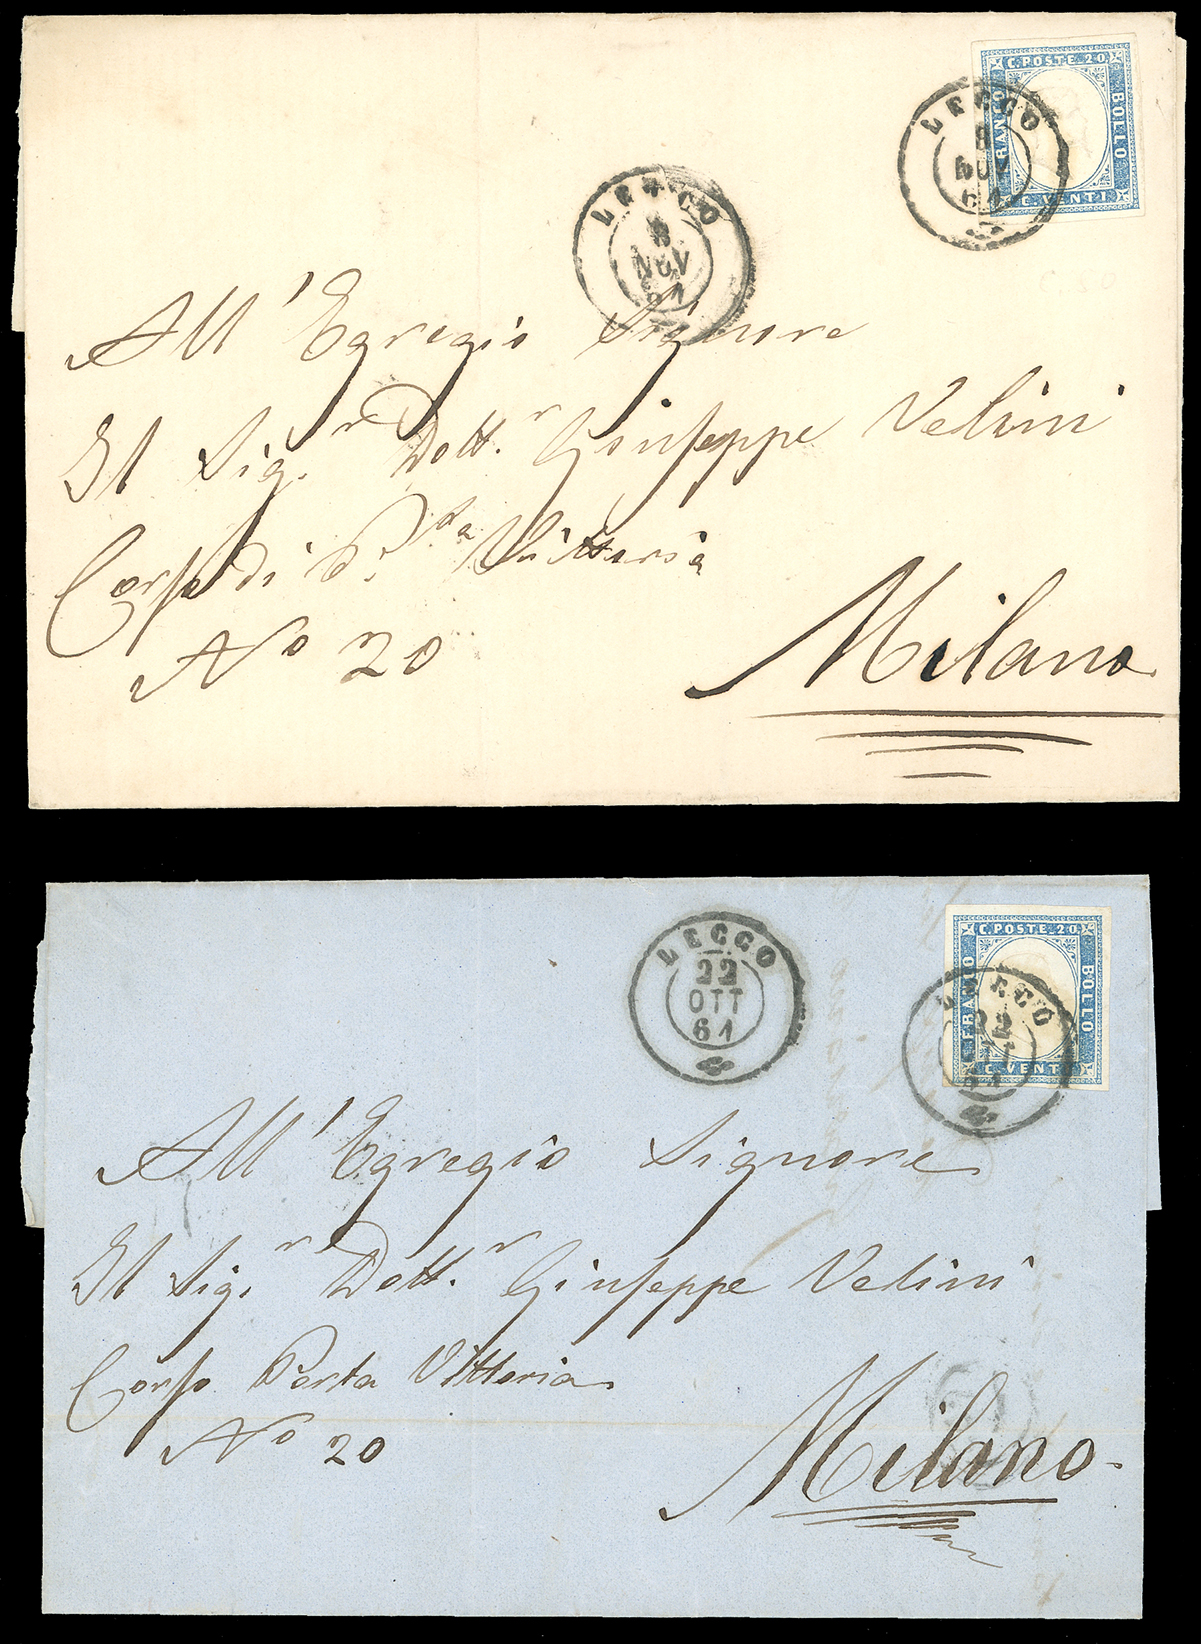 C. POSTE. 20.
FRANCO
BOLLO
C. VENTI.
LECCO
8
NOV
61
LECCO
8
NOV
61
All' Egregio Signore
Il Sig.r Dott.r Giuseppe Velini
Corso di P.ta Vittoria
No 20
Milano
C. POSTE. 20.
FRANCO
BOLLO
C. VENTI
LECCO
22
OTT
61
LECCO
22
OTT
61
All' Egregio Signore
Il Sig.r Dott.r Giuseppe Velini
Corso Porta Vittoria
No 20
Milano.